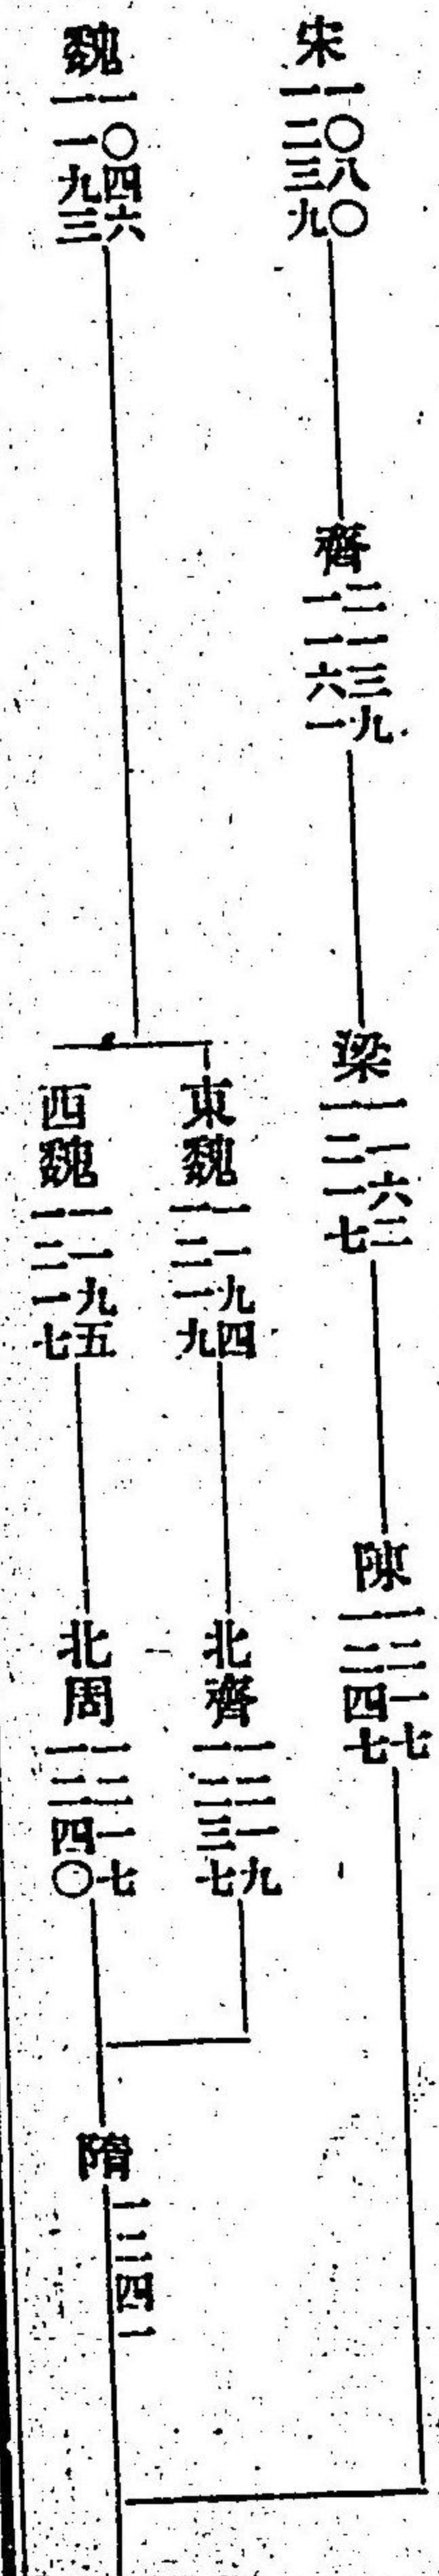 宋
一〇八〇
一二三九
齊
二一三九
一一六一
梁
一一六二
一二一七
陳
一二一七
一二四七
魏
一〇四六
一一九三
東魏
一一九四
一二一九
北齊
一二一九
一二三七
西魏
一一九五
一二一七
北周
一二一七
一二四〇
隋
一二四一